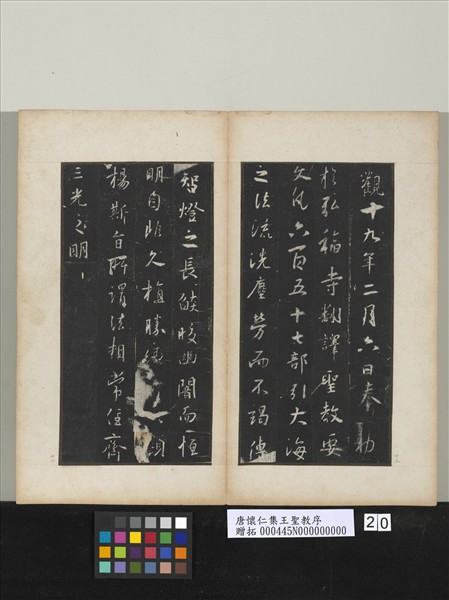 觀十九年二月六日奉勅
於弘福寺翻譯聖教要
文凡六百五十七部引大海
之法流洗塵勞而不竭傳
智燈之長焰皎幽闇而恒
明自非久植勝緣顯
揚斯旨所謂法相常住齊
三光之明
唐懷仁集王聖教序
贈拓 000445N000000000
20